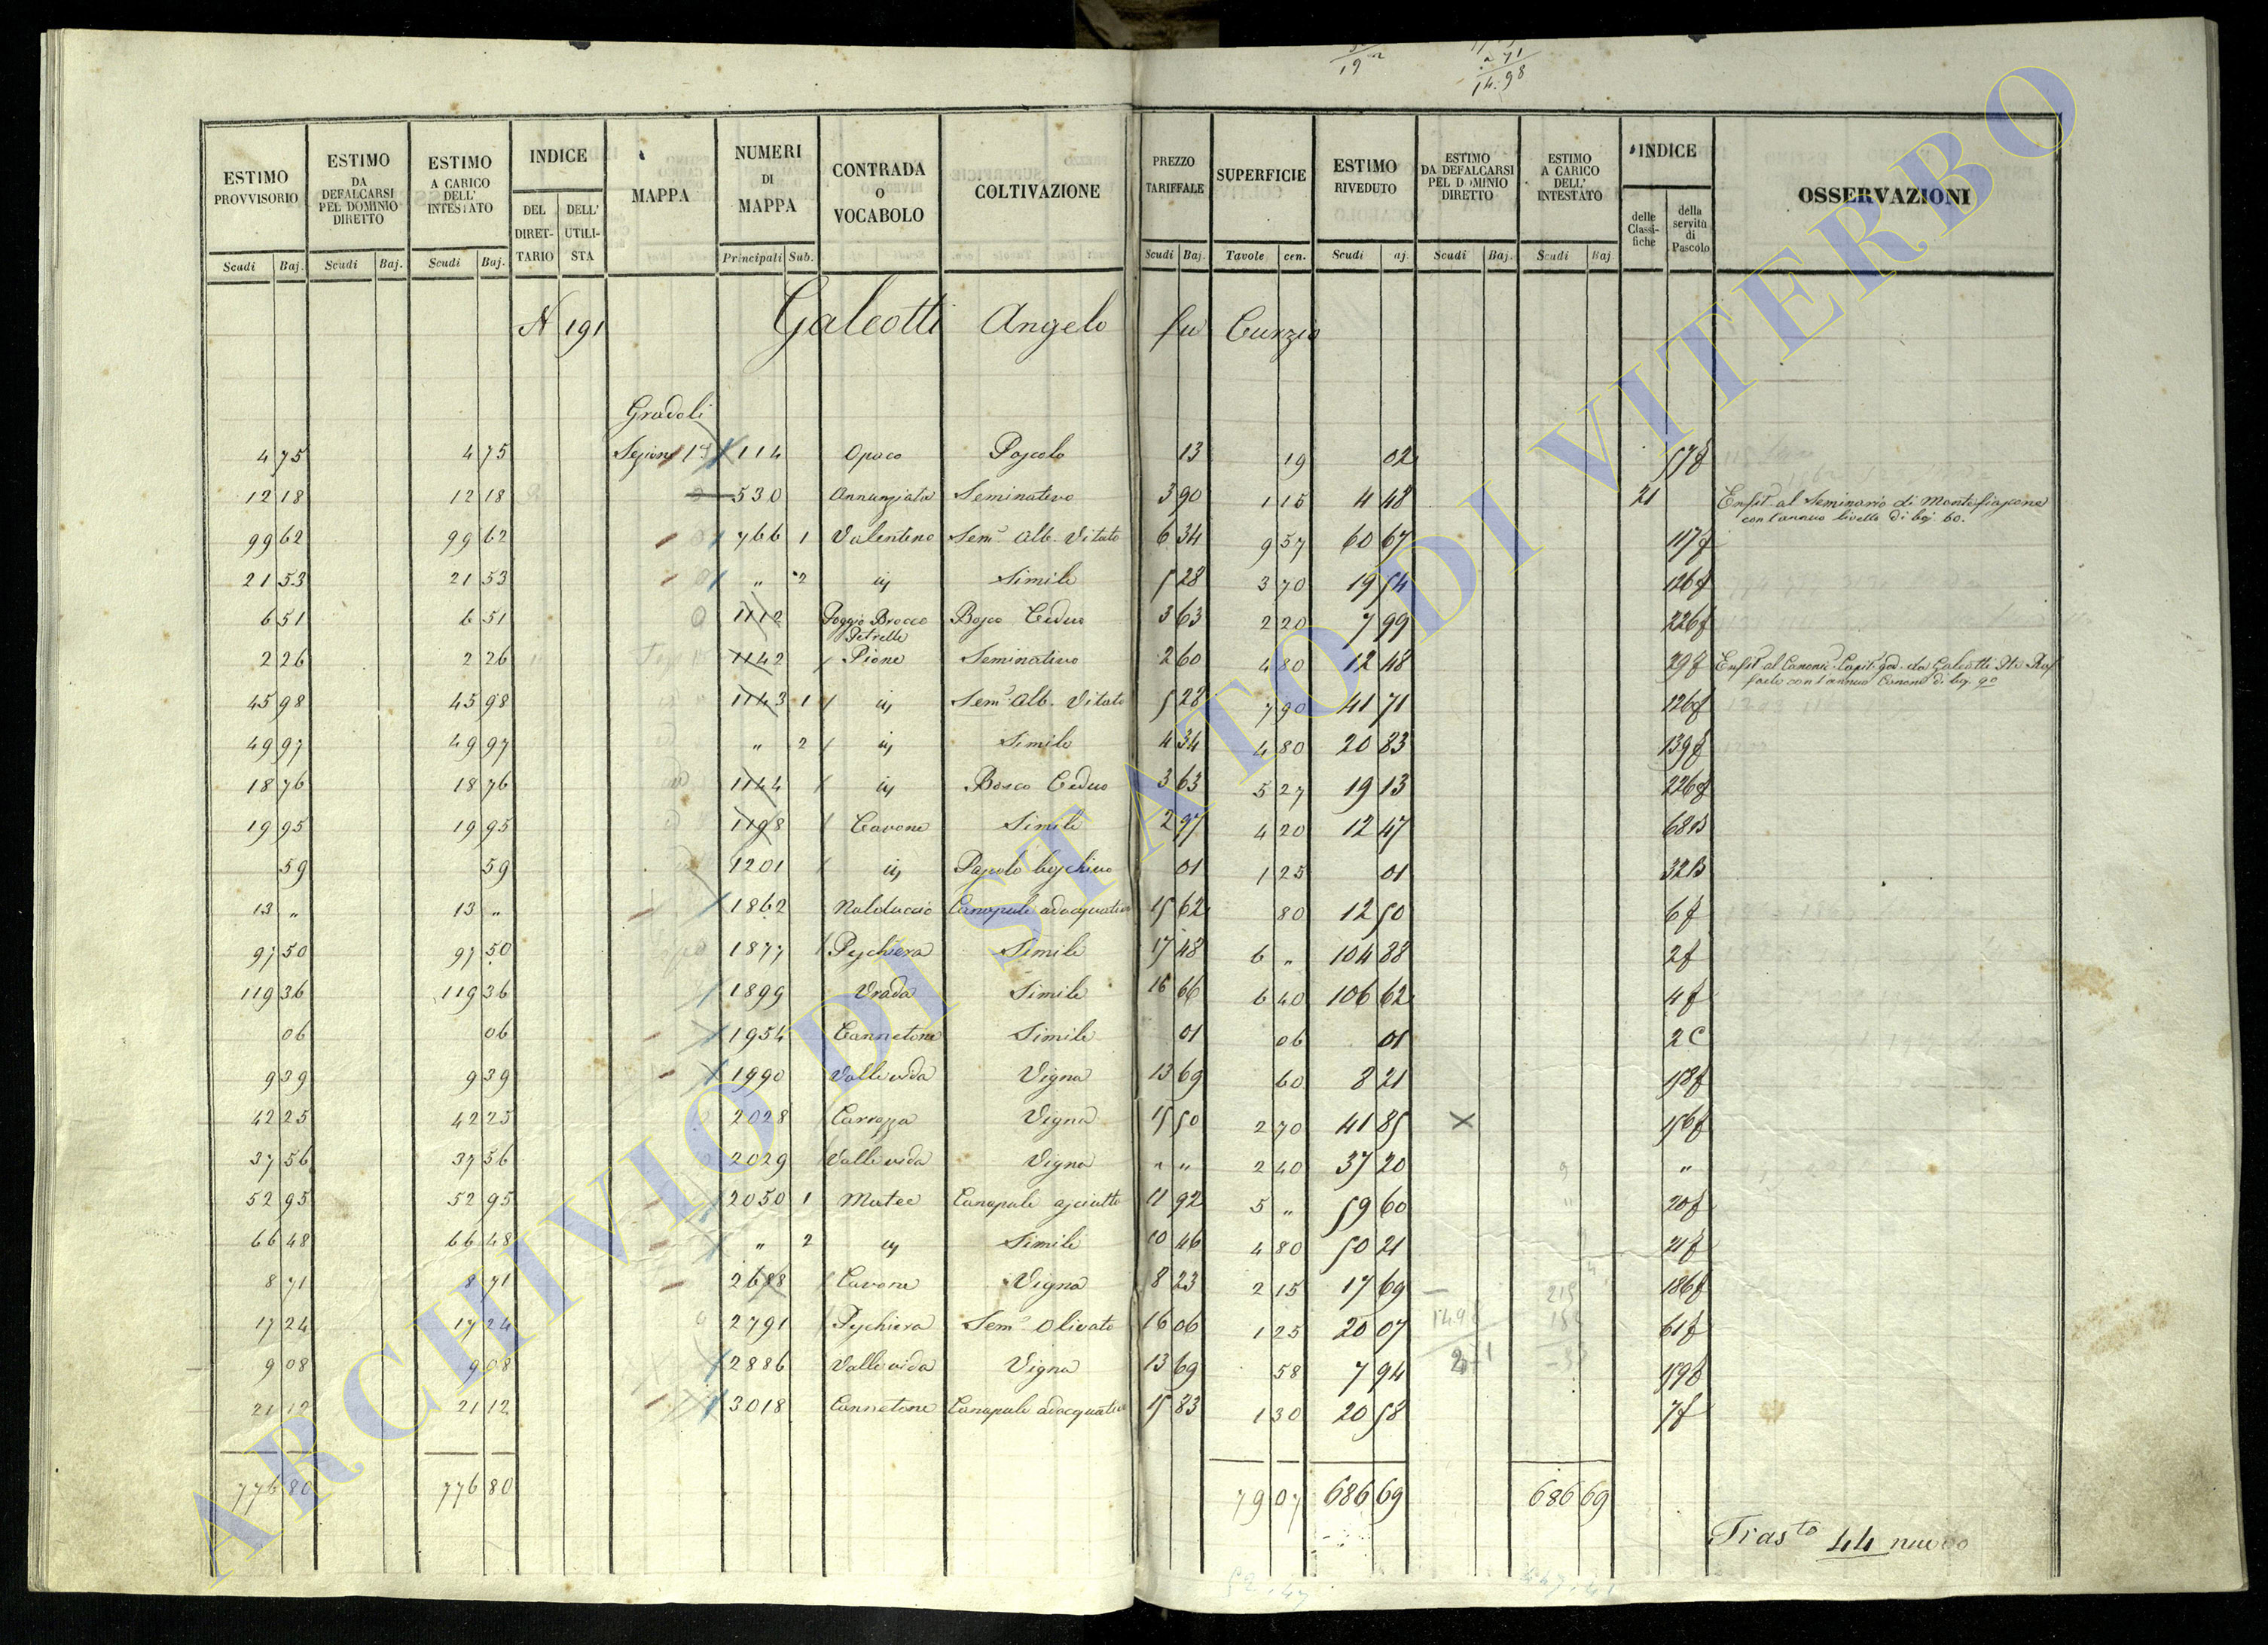 19
71
14.98
ESTIMO PROVVISORIO | ESTIMO DA DEFALCARSI PEL DOMINIO DIRETTO | ESTIMO A CARICO DELL' INTESTATO | INDICE | MAPPA | NUMERI DI MAPPA | CONTRADA O VOCABOLO | COLTIVAZIONE | PREZZO TARIFFALE | SUPERFICIE | ESTIMO RIVEDUTO | ESTIMO DA DEFALCARSI PEL DOMINIO DIRETTO | ESTIMO A CARICO DELL' INTESTATO | INDICE | OSSERVAZIONI
DEL DIRETTARIO | DELL' UTILISTA | delle Classifiche | della servitù di Pascolo
Scudi | Baj. | Scudi | Baj. | Scudi | Baj. | Principali | Sub. | Scudi | Baj. | Tavole | cen. | Scudi | aj. | Scudi | Baj. | Scudi | Baj
N 191 Galeotti Angelo fu Curzio
Gradoli
4 75 | 4 75 | Sezione 1ª | 114 | Opaco | Pascolo | 13 | 19 | 02 | 57f
12 18 | 12 18 | 530 | Annunziata | Seminativo | 3 90 | 1 15 | 4 48 | 21 | Enfit. al Seminario di Montefiascone
con l'annuo livello di baj 60.
99 62 | 99 62 | 766 | 1 | Valentino | Sem. Alb. Vitato | 6 34 | 9 57 | 60 67 | 117f
21 53 | 21 53 | " | 2 | in | Simile | 5 28 | 3 70 | 19 54 | 126f
6 51 | 6 51 | 1112 | Poggio Brocco | Bosco Ceduo | 3 63 | 2 20 | 7 99 | 226f
Petrelle
2 26 | 2 26 | 1142 | Pione | Seminativo | 2 60 | 4 80 | 12 48 | 29f | Enfit. al Canonic. Capit.
con l'annuo Canone di baj. 90
45 98 | 45 98 | 1143 | 1 | in | Sem. Alb. Vitato | 5 28 | 7 90 | 41 71 | 126f
49 97 | 49 97 | " | 2 | in | Simile | 4 34 | 4 80 | 20 83 | 139f
18 76 | 18 76 | 1144 | in | Bosco Ceduo | 3 63 | 5 27 | 19 13 | 226f
19 95 | 19 95 | 1198 | Cavone | Simile | 2 97 | 4 20 | 12 47 | 68B
59 | 59 | 1201 | in | Pascolo boschivo | 01 | 1 25 | 01 | 32B
13 " | 13 " | 1862 | Nalduccio | Canapule adacquativo | 15 62 | 80 | 12 50 | 6f
97 50 | 97 50 | 1877 | Peschiera | Simile | 17 48 | 6 " | 104 88 | 2f
119 36 | 119 36 | 1899 | Vrada | Simile | 16 66 | 6 40 | 106 62 | 4f
06 | 06 | 1954 | Cannetone | Simile | 01 | 06 | 01 | 2C
9 39 | 9 39 | 1990 | Valle vida | Vigna | 13 69 | 60 | 8 21 | 158f
42 25 | 42 25 | 2028 | Carrozza | Vigna | 15 50 | 2 70 | 41 85 | X | 156f
37 56 | 37 56 | 2029 | Valle vida | Vigna | " " | 2 40 | 37 20 | "
52 95 | 52 95 | 2050 | 1 | Matee | Canapule asciutto | 11 92 | 5 " | 59 60 | 20f
66 48 | 66 48 | " | 2 | in | Simile | 10 46 | 4 80 | 50 21 | 21f
8 71 | 8 71 | 2688 | Cavone | Vigna | 8 23 | 2 15 | 17 69 | 186f
17 24 | 17 24 | 2791 | Peschiera | Sem. Olivato | 16 06 | 1 25 | 20 07 | 61f
9 08 | 9 08 | 2886 | Valle vida | Vigna | 13 69 | 58 | 7 94 | 159f
21 12 | 21 12 | 3018 | Cannetone | Canapule adacquativo | 15 83 | 1 30 | 20 58 | 7f
776 80 | 776 80 | 79 07 | 686 69 | 686 69
Trasto 44 nuovo
ARCHIVIO DI STATO DI VITERBO